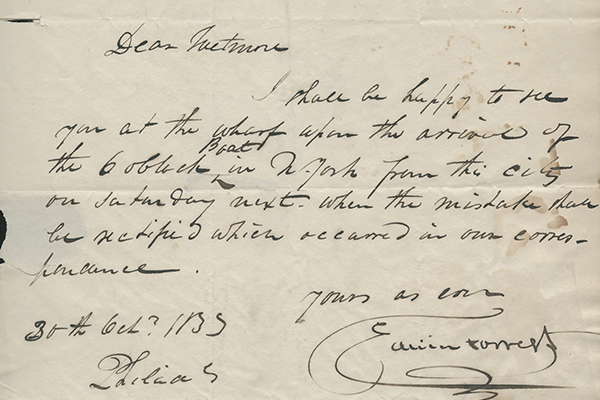 Dear Wetmore
I shall be happy to see
you at the wharf upon the arrival of
the 6 oblock Boat in N-York from this city
on Saturday next- when the mistake shall
be rectified which occurred in our corres-
pondance.
yours as ever
Edwin Forrest
30th Oct. 1835
Philada